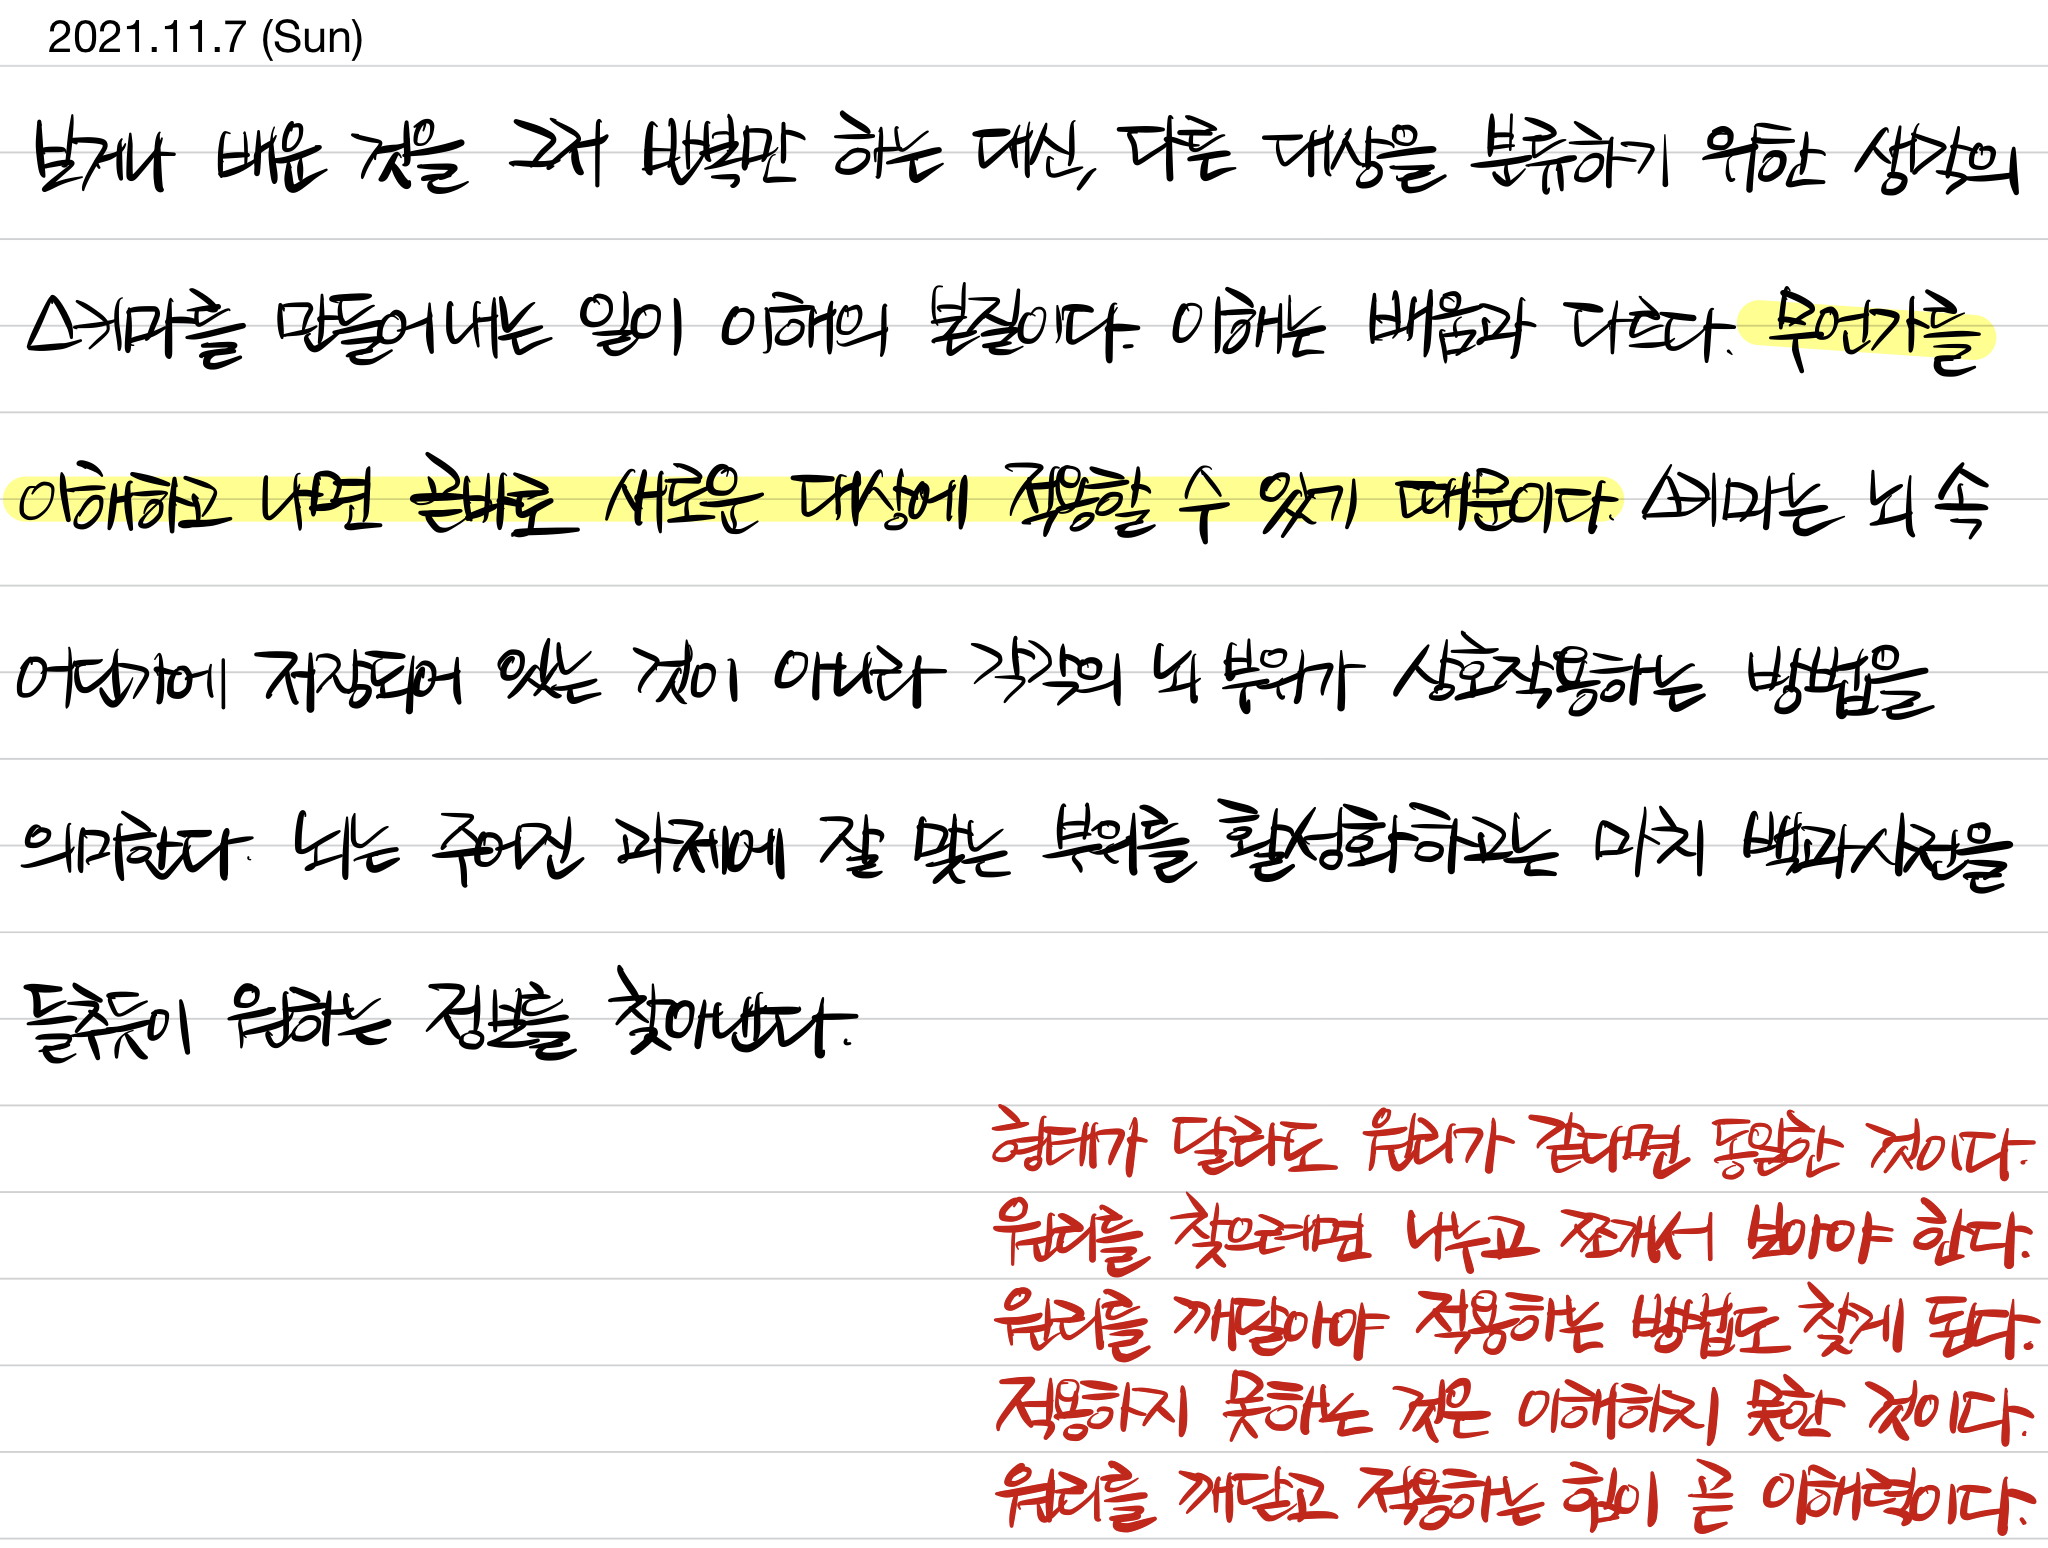 2021.11.7 (Sun)
보거나 배운 것을 그저 반복만 하는 대신, 다른 대상을 분류하기 위한 생각의
스키마를 만들어내는 일이 이해의 본질이다. 이해는 배움과 다르다. 무언가를
이해하고 나면 곧바로 새로운 대상에 적용할 수 있기 때문이다. 스키마는 뇌 속
어딘가에 저장되어 있는 것이 아니라 각각의 뇌 부위가 상호작용하는 방법을
의미한다. 뇌는 주어진 과제에 잘 맞는 부위를 활성화하고는 마치 백과사전을
들추듯이 원하는 정보를 찾아낸다.
형태가 달라도 원리가 같다면 동일한 것이다.
원리를 찾으려면 나누고 쪼개서 보아야 한다.
원리를 깨달아야 적용하는 방법도 찾게 된다.
적용하지 못하는 것은 이해하지 못한 것이다.
원리를 깨닫고 적용하는 힘이 곧 이해력이다.